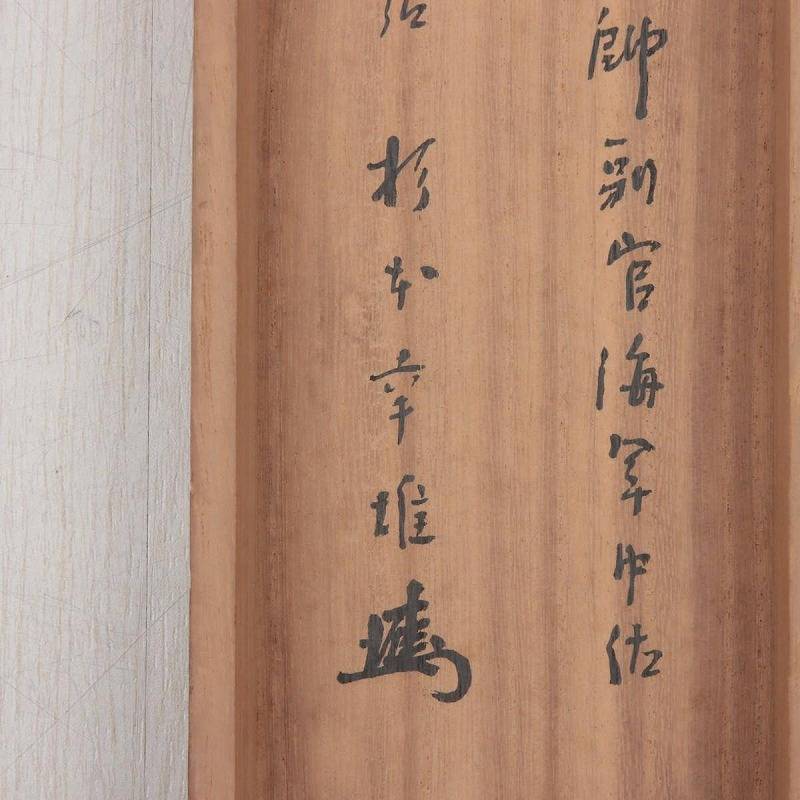 帥副官海軍中佐
杉本幸雄